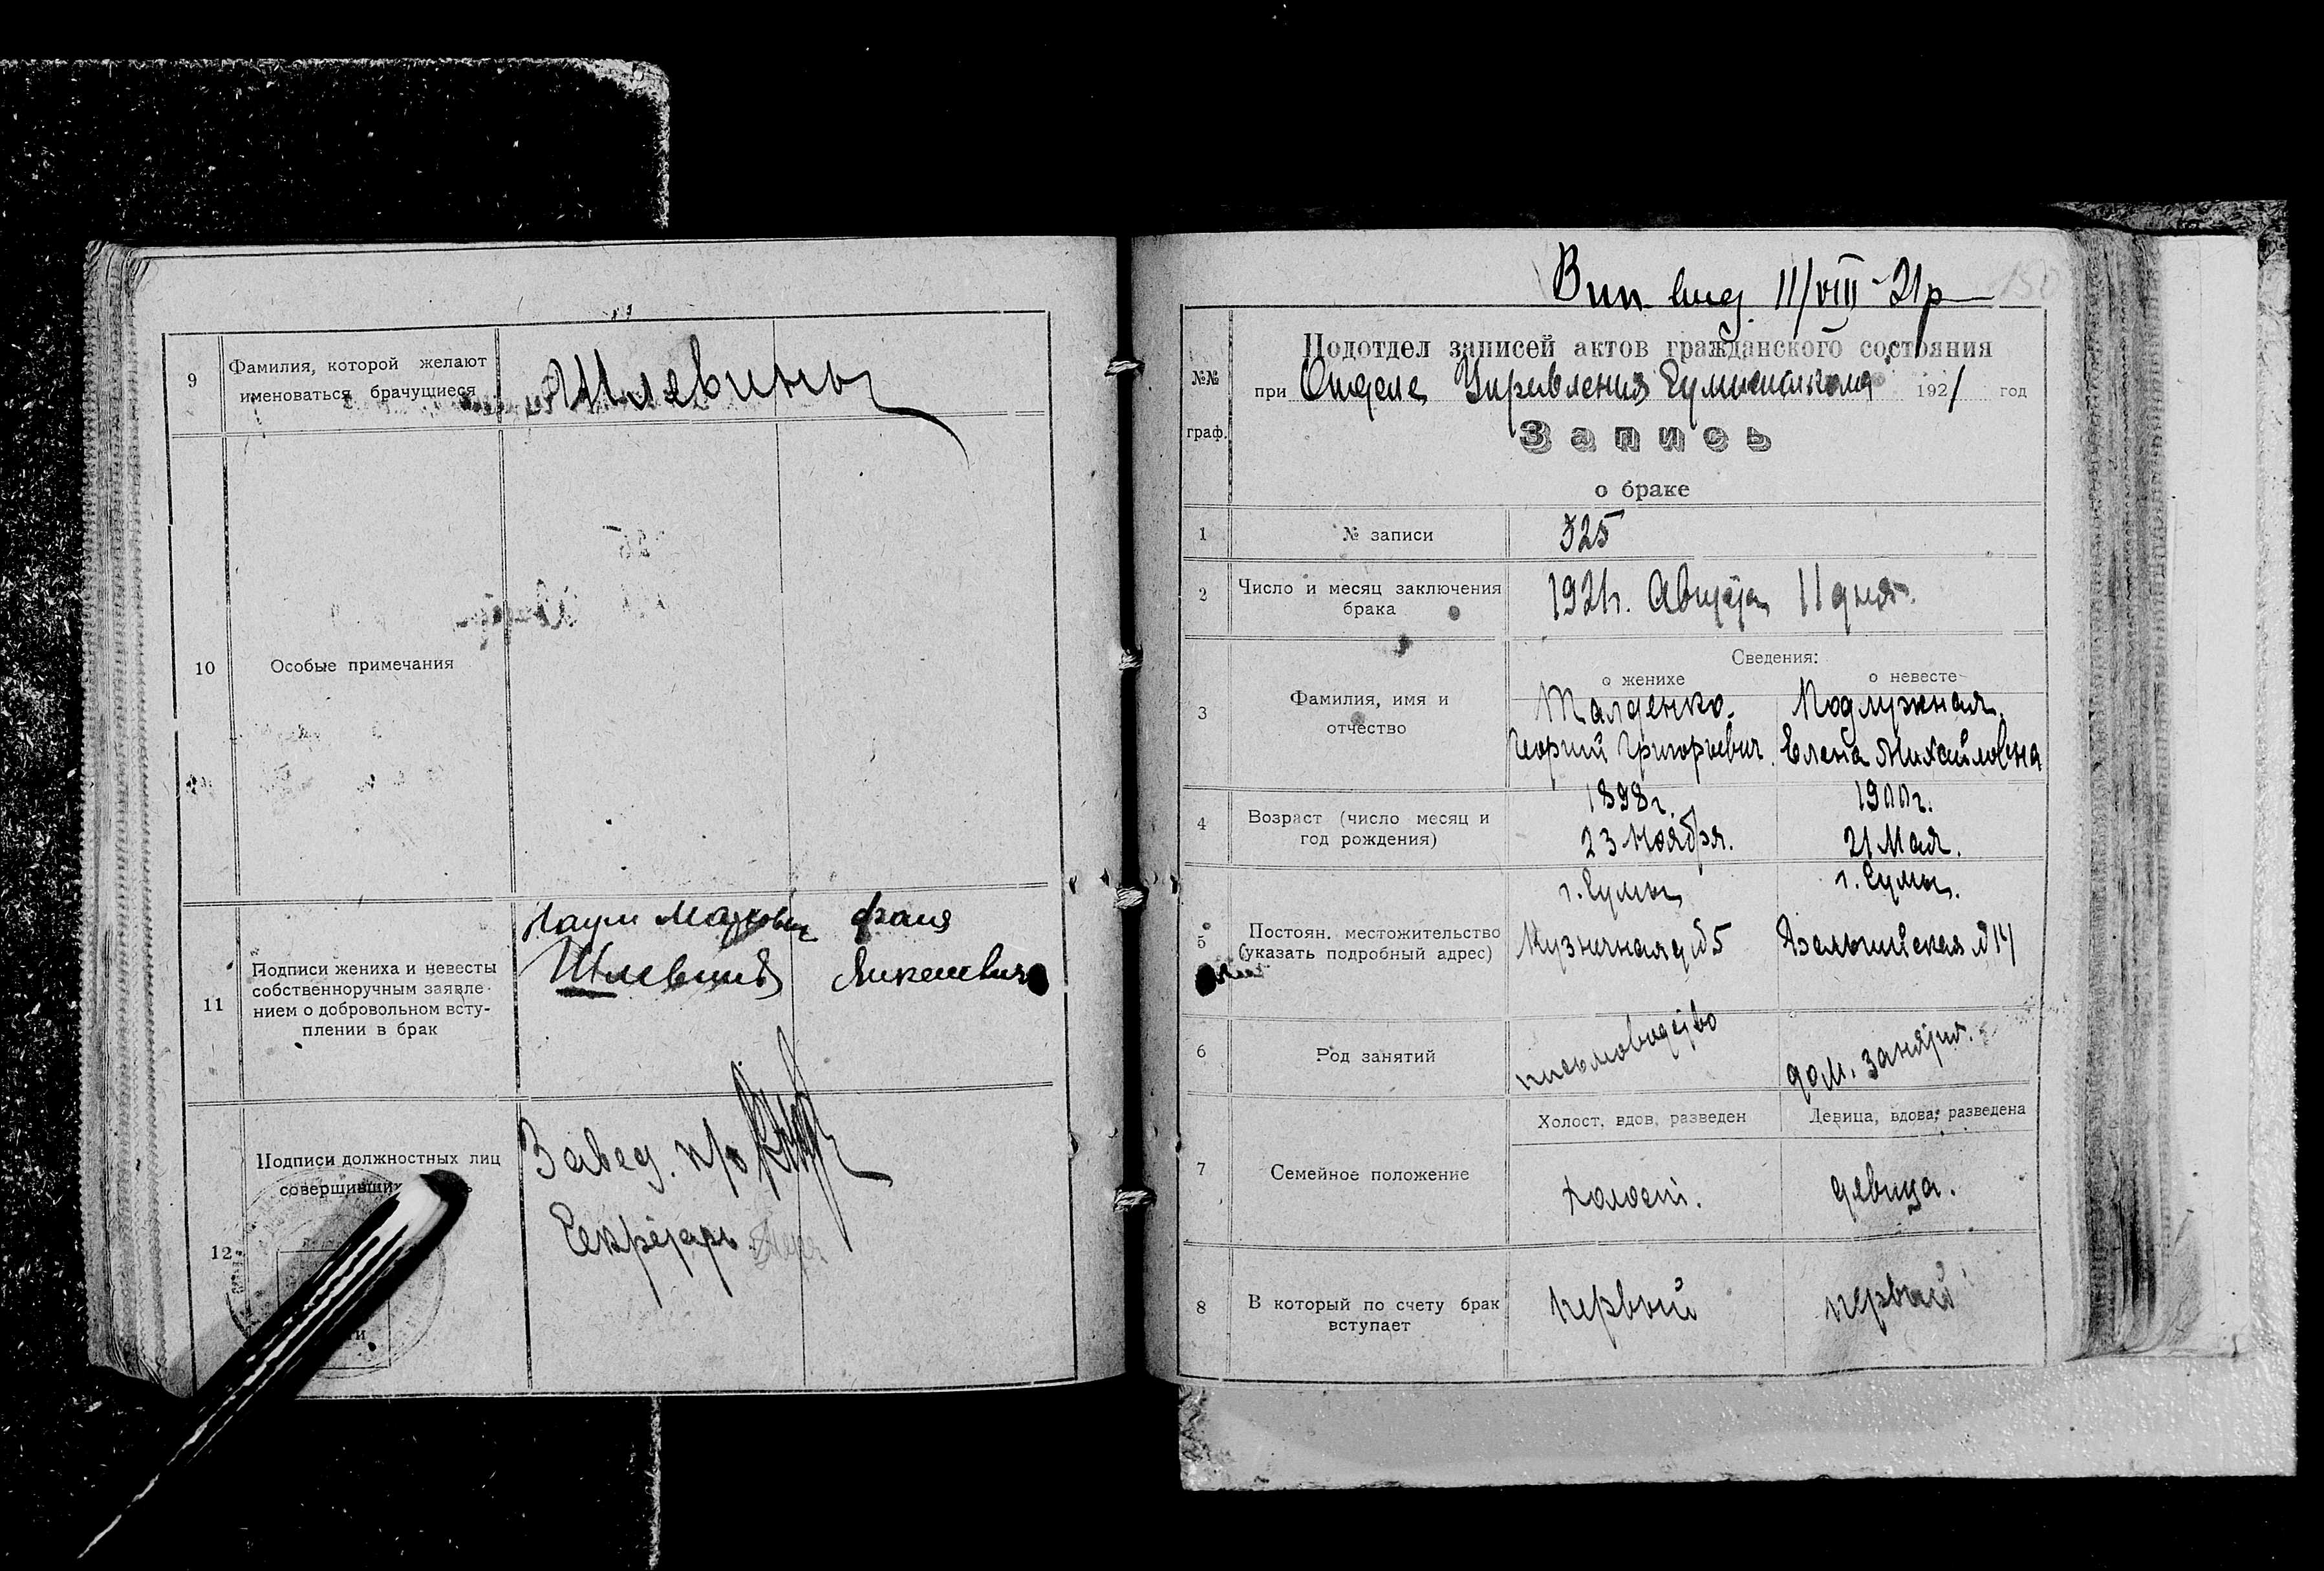 9
Фамилия, которой желают
именоваться брачущиеся
Шлевины
10
Особые примечания
11
Подписи жениха и невесты
собственноручным заявле-
нием о добровольном всту-
плении в брак
Наум
Фаня
Шлевин
12
Подписи должностных лиц
совершивших
Завед. п/о
Секретарь
11/VIII-21р
№№
граф.
Подотдел записей актов гражданского состояния
при Отделе Управления 1921 год
Запись
о браке
1
№ записи
325
2
Число и месяц заключения
брака
1921г. Августа 11 дня.
Сведения:
о женихе
о невесте
3
Фамилия, имя и
отчество
Талденко.
Подлужная.
Георгий Григорьевич.
Елена Михайловна
4
Возраст (число месяц и
год рождения)
1898г.
23 Ноября.
1900г.
21 Мая.
5
Постоян. местожительство
(указать подробный адрес)
г. Сумы,
Кузнечная д№5
г. Сумы.
№14
6
Род занятий
письмоводство
дом. занятия.
7
Семейное положение
Холост, вдов, разведен
Девица, вдова, разведена
холост.
девица.
8
В который по счету брак
вступает
первый
первый